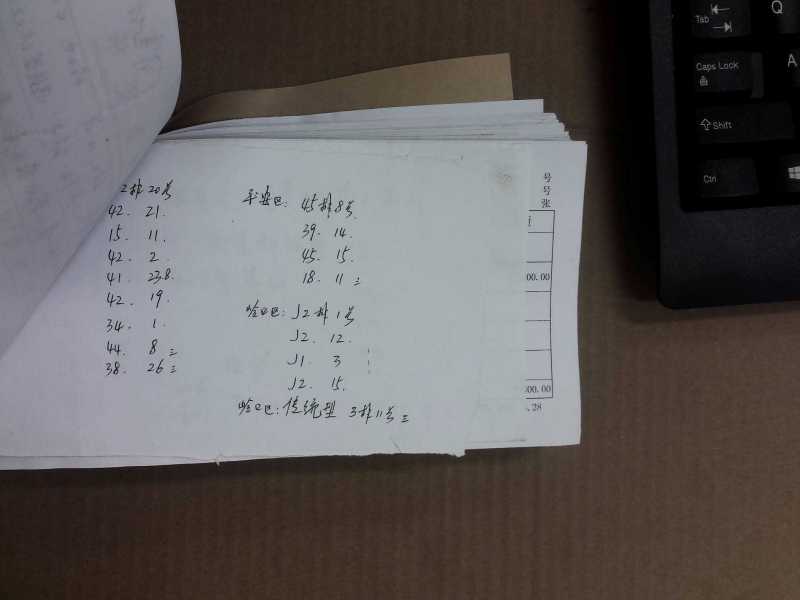 2排20号
42. 21.
15. 11.
42. 2
41. 23.8.
42. 19.
34. 1.
44. 8 三
38. 26 三
平安巴: 45排8号
39. 14.
45. 15.
18. 11 三
哈口巴: J2排1号
J2. 12.
J1. 3
J2. 15.
哈口巴: 传统型 3排11号 三
号
号
张
00.00
00.00
.28
Tab
Q
Caps Lock
A
Shift
Ctrl